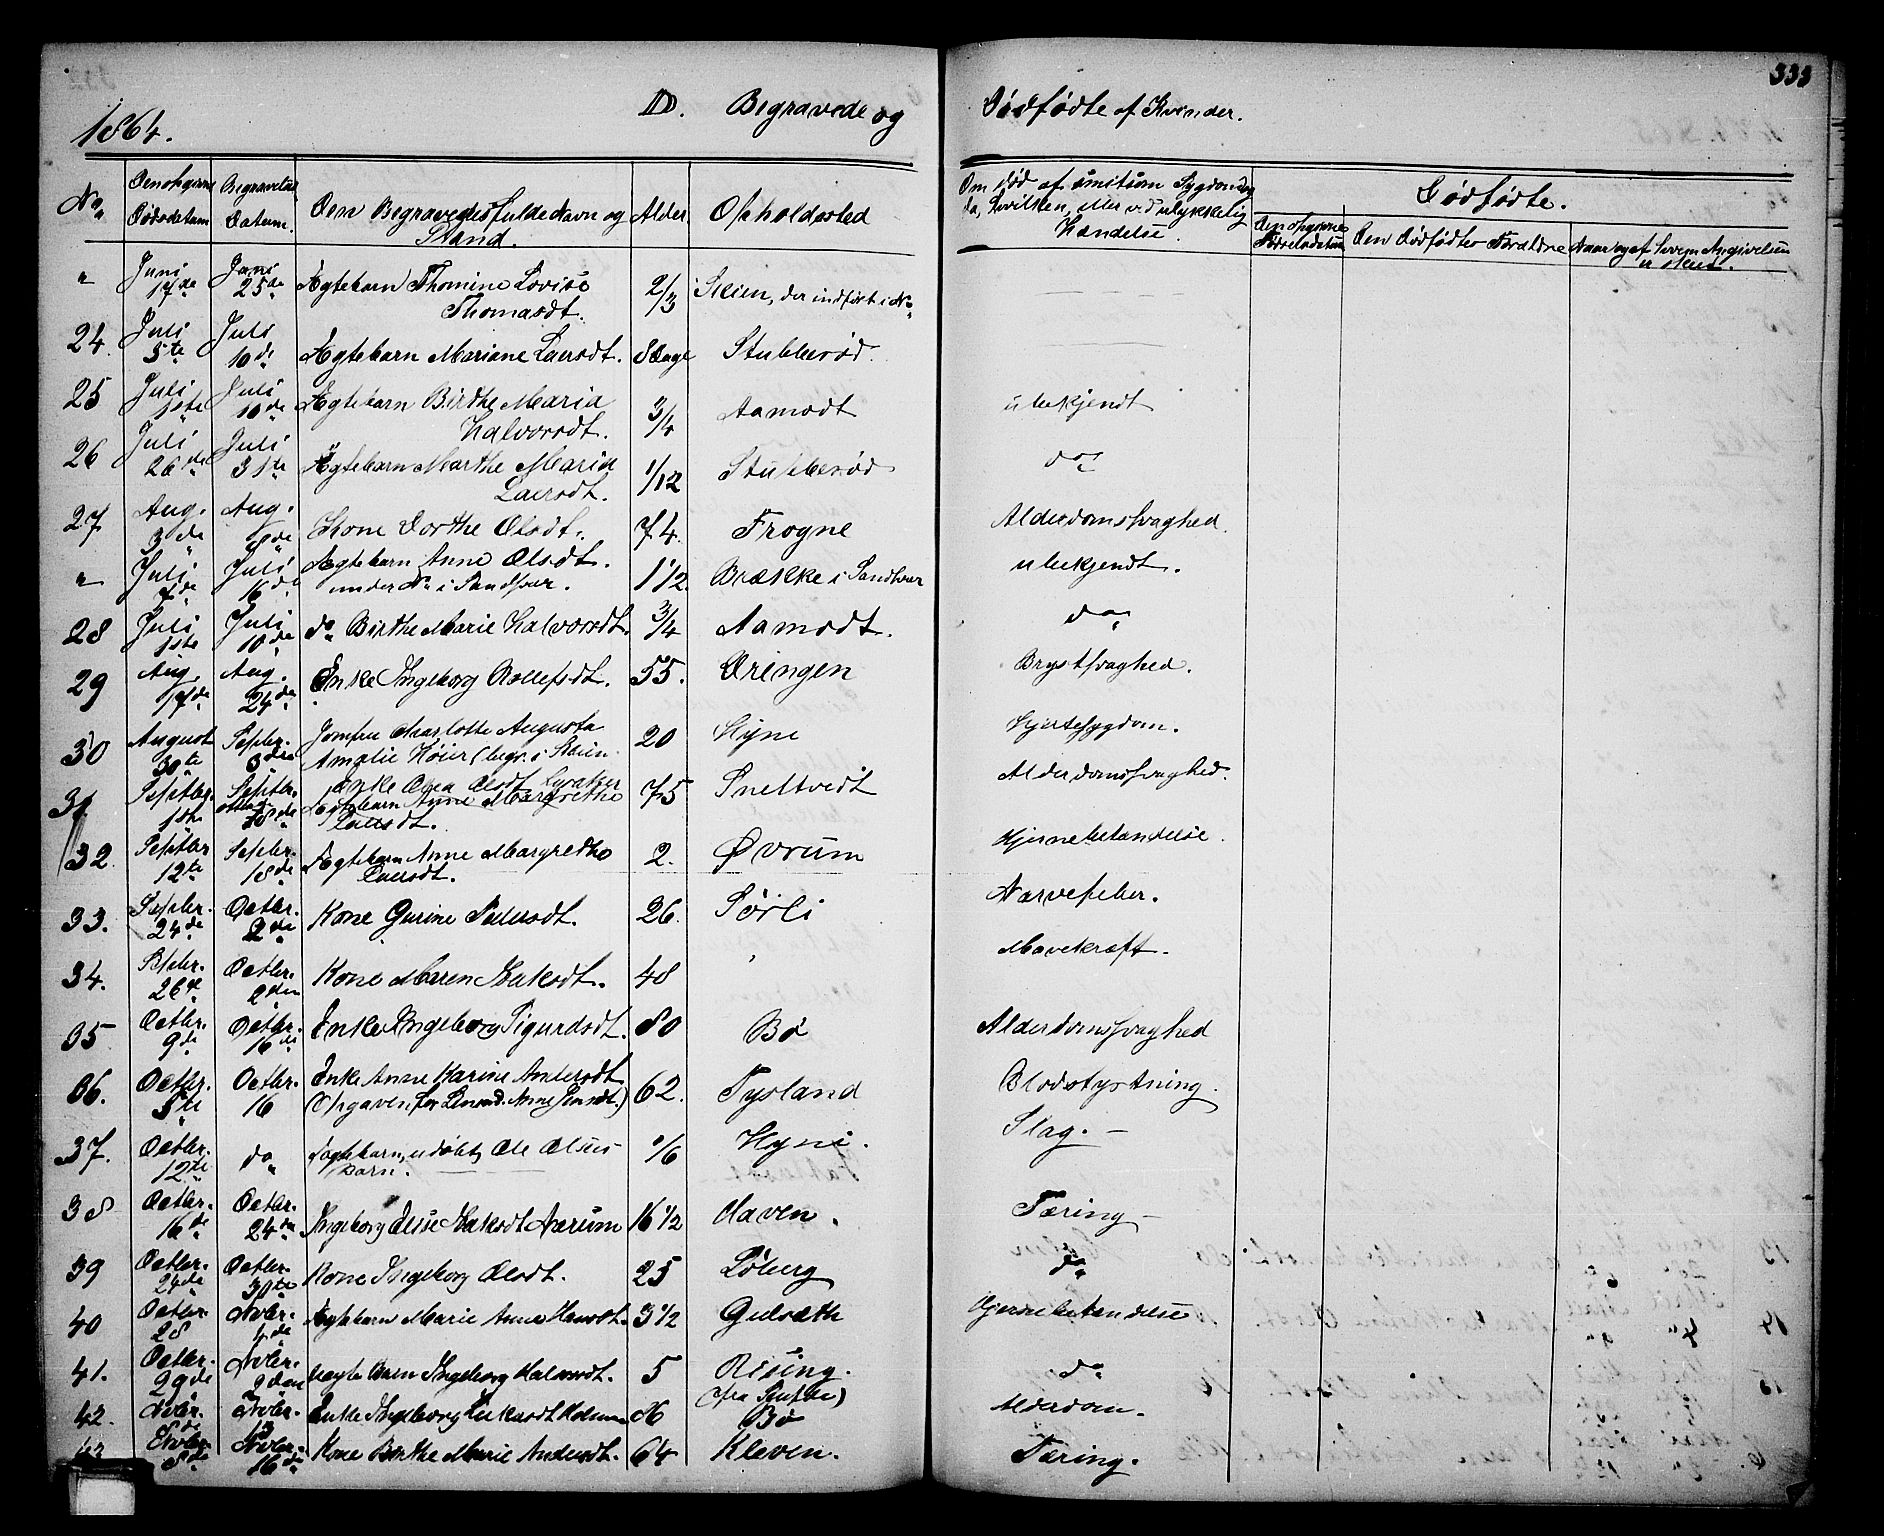 333
1864.
D. Begravede og Dødfødte af Kvinder.
No. Den opgivne Dødsdatum Begravelses Datum. Den Begravedes fulde Navn og Stand. Alder Opholdssted Om død af smitsom Sygdom, da hvilken, eller ved ulykkelig Hændelse.
Dødfødte.
Den opgivne Fødselsdatum Den Dødfødtes Forældre Naar og af hvem Angivelsen er skeet.
" Juni 17de Juni 25de Ægtebarn Thomine Lovise Thomasdt. 2/3 Skien, der indført i No.
24. Juli 5te Juli 10de Ægtebarn Mariane Larsdt. 8 Dage Stubberød.
25 Juli 1ste Juli 10de Ægtebarn Birthe Maria Halvorsdt. 3/4 Aamodt ubekjendt
26 Juli 26de Juli 31te Ægtebarn Marthe Maria Larsdt. 1/12 Stubberød do
27 Aug. 3de Aug. 8de Kone Dorthe Olsdt. 74. Frogne Alderdomssvaghed.
" Juli 7de Juli 16de Ægtebarn Anne Olsdt. under No i Sandsvær. 1 1/2 Brække i Sandsvær ubekjendt.
28 Juli 1ste Juli 10de do Birthe Marie Halvorsdt. 3/4 Aamodt. do
29 Aug. 17de Aug. 24de Enke Ingeborg Rollefsdt. 55. Øringen Brystsvaghed.
30 August 30te Septbr. 3die Jomfru Charlotte Augusta Amalie Høier (begr. i Skien 20 Hyni Hjertesygdom.
31 Septbr. 1ste Septbr. 18de Enke Olea Olsdt. 75 Sneltvedt Alderdomssvaghed.
Ægtebarn Anne Margrethe Larsdt.
32. Septbr 12te Septbr. 18de Ægtebarn Anne Margrethe Larsdt. 2. Øvrum Hjernebetændelse.
33. Septbr. 24de Octbr. 2de Kone Gurine Pedersdt. 26. Sørli Nervefeber.
34. Septbr. 26de Octbr. 2den Kone Maren Isaksdt. 48 Mavekræft.
35 Octbr. 9de Octbr. 16de Enke Ingeborg Sigurdsdt. 80 Bø Alderdomssvaghed
36. Octbr. 5te Octbr. 16 Enke Anne Karine Andersdt. (Opgaven fra Lensmd. Anne Jensdt.) 62. Tysland Blodstyrtning.
37. Octbr. 12te do Ægtebarn, udøbt, Ole Olsens Barn. 1/6 Hyni. Slag.
38 Octbr. 16de Octbr. 24de Ingeborg Else Isaksdt Aarum 16 1/2 Haven. Tæring
39 Octbr. 24de Octbr. 30te Kone Ingeborg Olsdt. 25 Løberg do
40 Octbr. 28 Novbr. 4de Ægtebarn Marie Anne Hansdt. 3 1/2 Gulsæth Hjernebetændelse
41. Octbr. 29de Novbr. 2den uægte Barn Ingeborg Halvorsdt. 5 Rising. do
42. Novbr. 8de Novbr. 13 Enke Ingeborg Isaksdt Holm 86 Bø Alderdom.
43 Novbr. 8de Novbr. 16de Kone Birthe Marie Andersdt. 64 Kleven. Tæring.